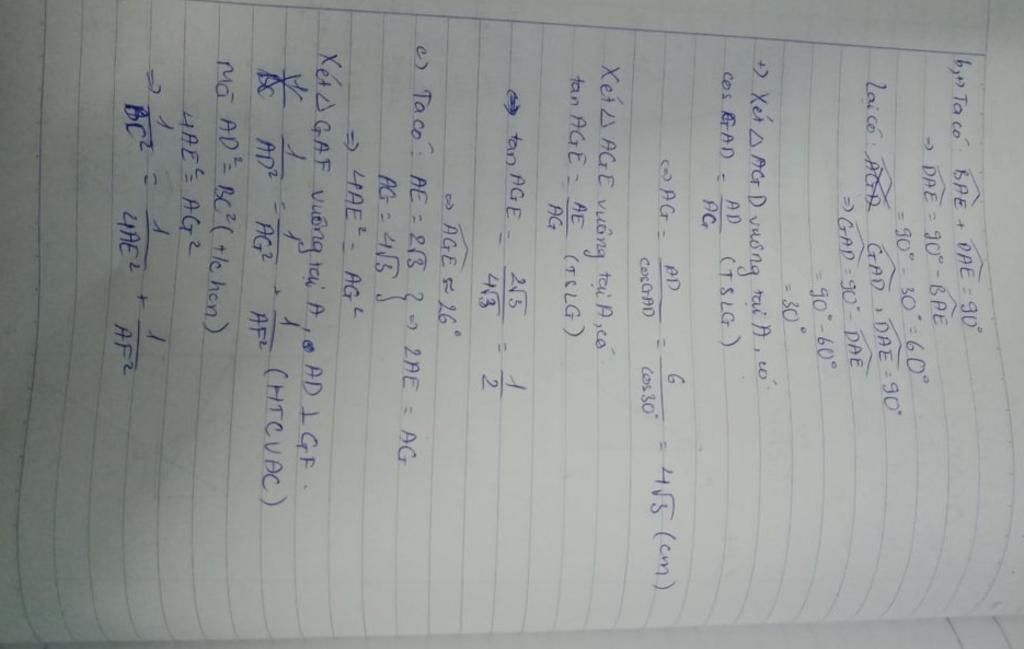 b, +) Ta có: BAE + DAE = 90°
⇒ DAE = 90° - BAE
= 90° - 30° = 60°
Lại có: GAD + DAE = 90°
⇒ GAD = 90° - DAE
= 90° - 60°
= 30°
+) Xét △ AGD vuông tại A, có:
cos GAD = AD/AG (TSLG)
⇔ AG = AD/cosGAD = 6/cos30° = 4√3 (cm)
Xét △ AGE vuông tại A, có
tan AGE = AE/AG (TSLG)
⇔ tan AGE = 2√3/4√3 = 1/2
⇔ AGE ≈ 26°
c) Ta có: AE = 2√3 } ⇒ 2AE = AG
AG = 4√3
⇒ 4AE² = AG²
Xét △ GAF vuông tại A, AD ⊥ GF.
1/AD² = 1/AG² + 1/AF² (HTCVAC)
Mà AD² = BC² (t/c hcn)
4AE² = AG²
⇒ 1/BC² = 1/4AE² + 1/AF²